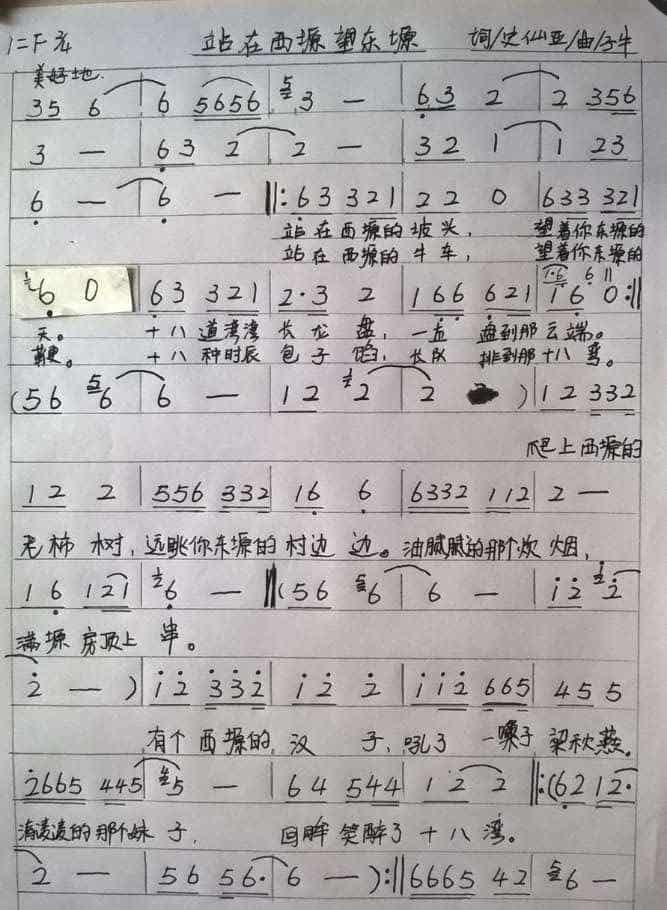 1=F 2/4 站在西塬望东塬 词/史仙亚/曲/子牛
美好地.
35 6 | 6 5656 | 3 — | 63 2 | 2 356
3 — | 63 2 | 2 — | 32 1 | 1 23
6 — | 6 — ‖: 63 321 | 22 0 | 633 321
站在西塬的坡头， 望着你东塬的
站在西塬的牛车， 望着你东塬的
6 0 | 63 321 | 2·3 2 | 166 621 | 16 0 :‖
天。 十八道湾湾 长龙盘， 一直 盘到那云端。
十八种时辰 包子馅， 长队 排到那十八弯。
(56 6 | 6 — | 12 2 | 2 ) | 12 332
爬上西塬的
12 2 | 556 332 | 16 6 | 6332 112 | 2 —
老柿树，远眺你东塬的村边边。油腻腻的那个炊烟，
16 121 | 6 — ‖ (56 6 | 6 — | 12 2
满塬房顶上串。
2 — ) | 12 332 | 12 2 | 112 665 | 45 5
有个西塬的 汉子，吼了一嗓子 梁秋燕。
2665 445 | 5 — | 64 544 | 12 2 ‖: (62 12·
清凌凌的那个妹子， 回眸笑醉了十八湾。
2 — | 56 56· | 6 — ) :‖ 6665 42 | 6 —